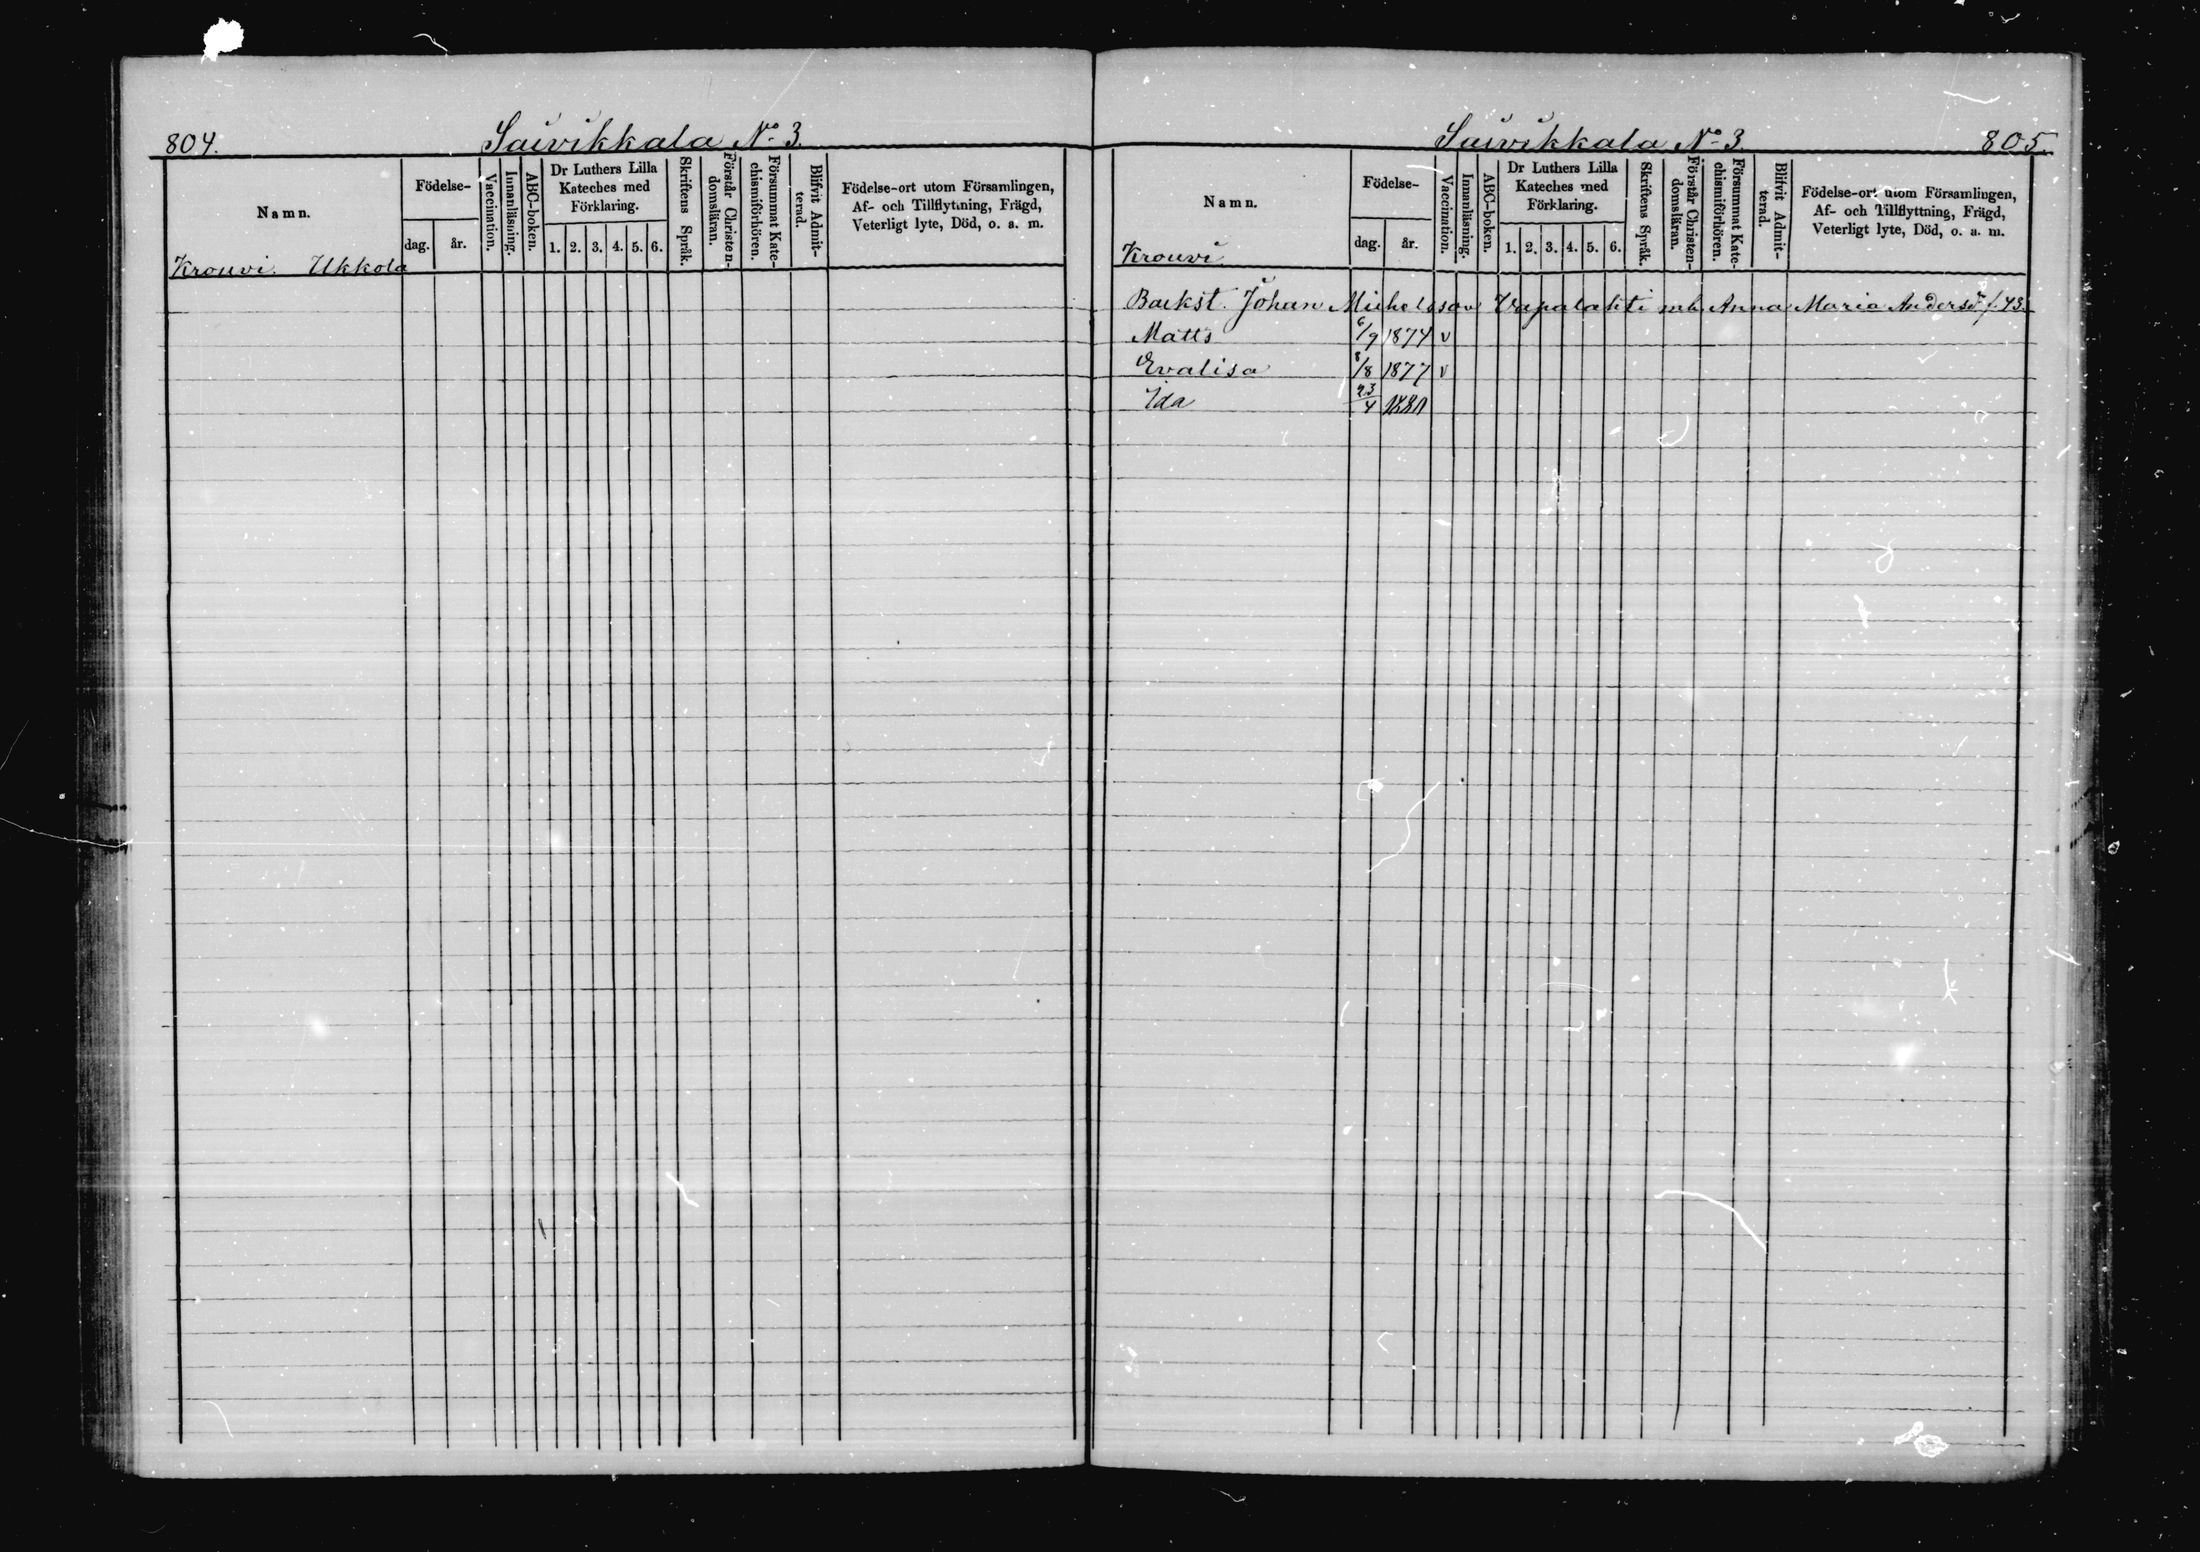 804.
Saivikkala No 3.
Namn.
Födelse-
dag. år.
Vaccination.
Innanläsning.
ABC-boken.
Dr Luthers Lilla
Kateches med
Förklaring.
1. 2. 3. 4. 5. 6.
Skriftens Språk.
Förstår Christen-
domsläran.
Försummat Kate-
chismiförhören.
Blifvit Admit-
terad.
Födelse-ort utom Församlingen,
Af- och Tillflyttning, Frägd,
Veterligt lyte, Död, o. a. m.
Krouvi. Ukkola
Saivikkala No 3.
805.
Namn.
Födelse-
dag. år.
Vaccination.
Innanläsning.
ABC-boken.
Dr Luthers Lilla
Kateches med
Förklaring.
1. 2. 3. 4. 5. 6.
Skriftens Språk.
Förstår Christen-
domsläran.
Försummat Kate-
chismiförhören.
Blifvit Admit-
terad.
Födelse-ort utom Församlingen,
Af- och Tillflyttning, Frägd,
Veterligt lyte, Död, o. a. m.
Krouvi
Backst. Johan Michelsson Vapalahti Anna Maria Andersdr f. 43.
Matts 6/9 1874 v
Evalisa 8/8 1877 v
Ida 23/4 1881